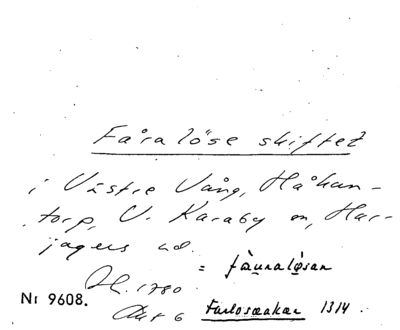 Fåralöse skiftet
i Västre Vång, Håkan-
torp, V. Karaby sn, Har-
jagers hd.
1780. = fåuraløsan
Nr 9608.
Akt 6 Farlosæakær 1314.